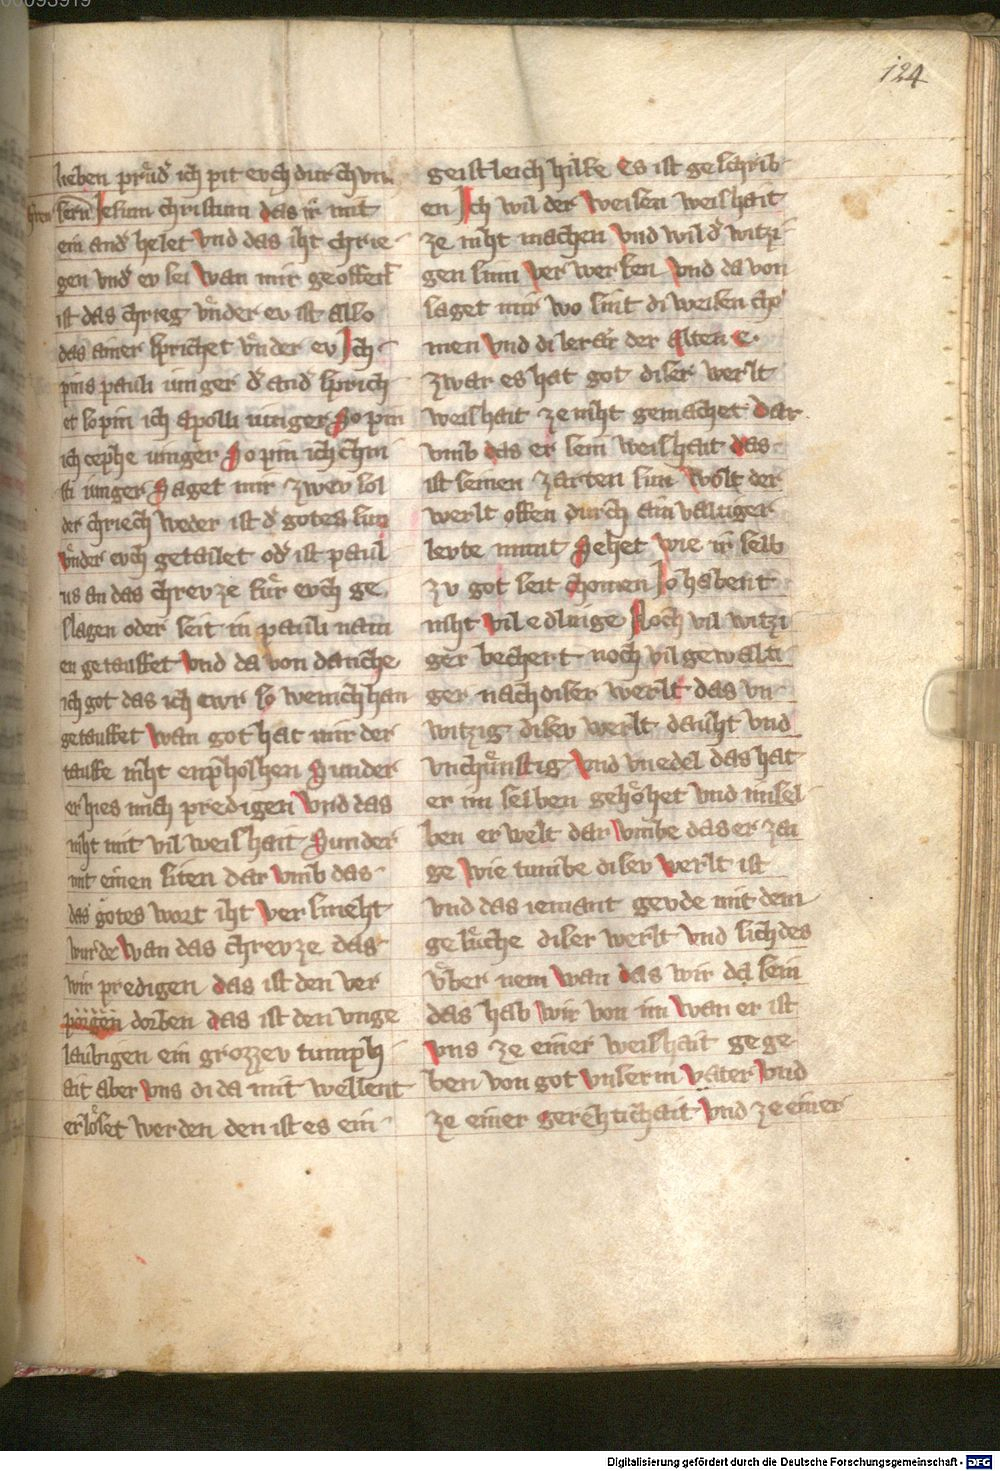 00093919
124
lieben průd' ich pit evch durch vn
hren sern Jesum christum das ir mit
ein and' helet vnd das iht chrie
gen vnd' ev sei wan mir geoffent
ist das chrieg vnder ev ist also
das ainer sprichet vnder ev Ich
pins pauli iunger d' and' sprich
et so pin ich apolli iunger So pin
ich cephe iunger So pin ich chri
sti iunger Saget mir zwev sol
der chriech weder ist d' gotes sun
vnder evch getailet od' ist paul
us an das chrevze fůr evch ge
slagen oder seit in pauli nam
en getauffet vnd da von danche
ich got das ich ewr so wenich han
getauffet wan got hat mir der
tauffe niht enpholhen Sunder
er hies mich predigen vnd das
niht mit vil weishait Sunder
mit einen siten dar vmb das
das gotes wort iht versmeht
wurde wan das chrevze das
wir predigen das ist den ver
dorben das ist den vnge
laubigen ein grozzev tumph
ait aber vns di da mit wellent
erlöset werden den ist es ein
geistleich hilfe Es ist geschrib
en Ich wil der weisen weishait
ze niht machen vnd wil d' witzi
gen sinn verwerfen vnd da von
saget mir wo sint di weisen cho
men vnd di lerar der alten e
zwar es hat got diser werlt
weishait ze niht gemachet dar
vmb das er sein weishait das
ist seinen zarten sun wolt der
werlt offen durch ainvaltiger
levte munt Sehet wie ir selb
zv got seit chomen Jo habent
niht vil edlinge Noch vil witzi
ger bechert noch vil gewalti
ger nach diser werlt das vn
witzig disev werlt dauht vnd
vnchůnstig vnd vnedel das hat
er im selben gehöhet vnd im sel
ben erwelt dar vmbe das er zai
ge wie tumbe disev werlt ist
vnd das iemant gevde mit dem
gesůche diser werlt vnd sich des
vber nem wan das wir da sein
das hab wir von im wan er ist
vns ze einer weishait gege
ben von got vnserm vater vnd
ze einer gerehtichait vnd ze einer
Digitalisierung gefördert durch die Deutsche Forschungsgemeinschaft - DFG